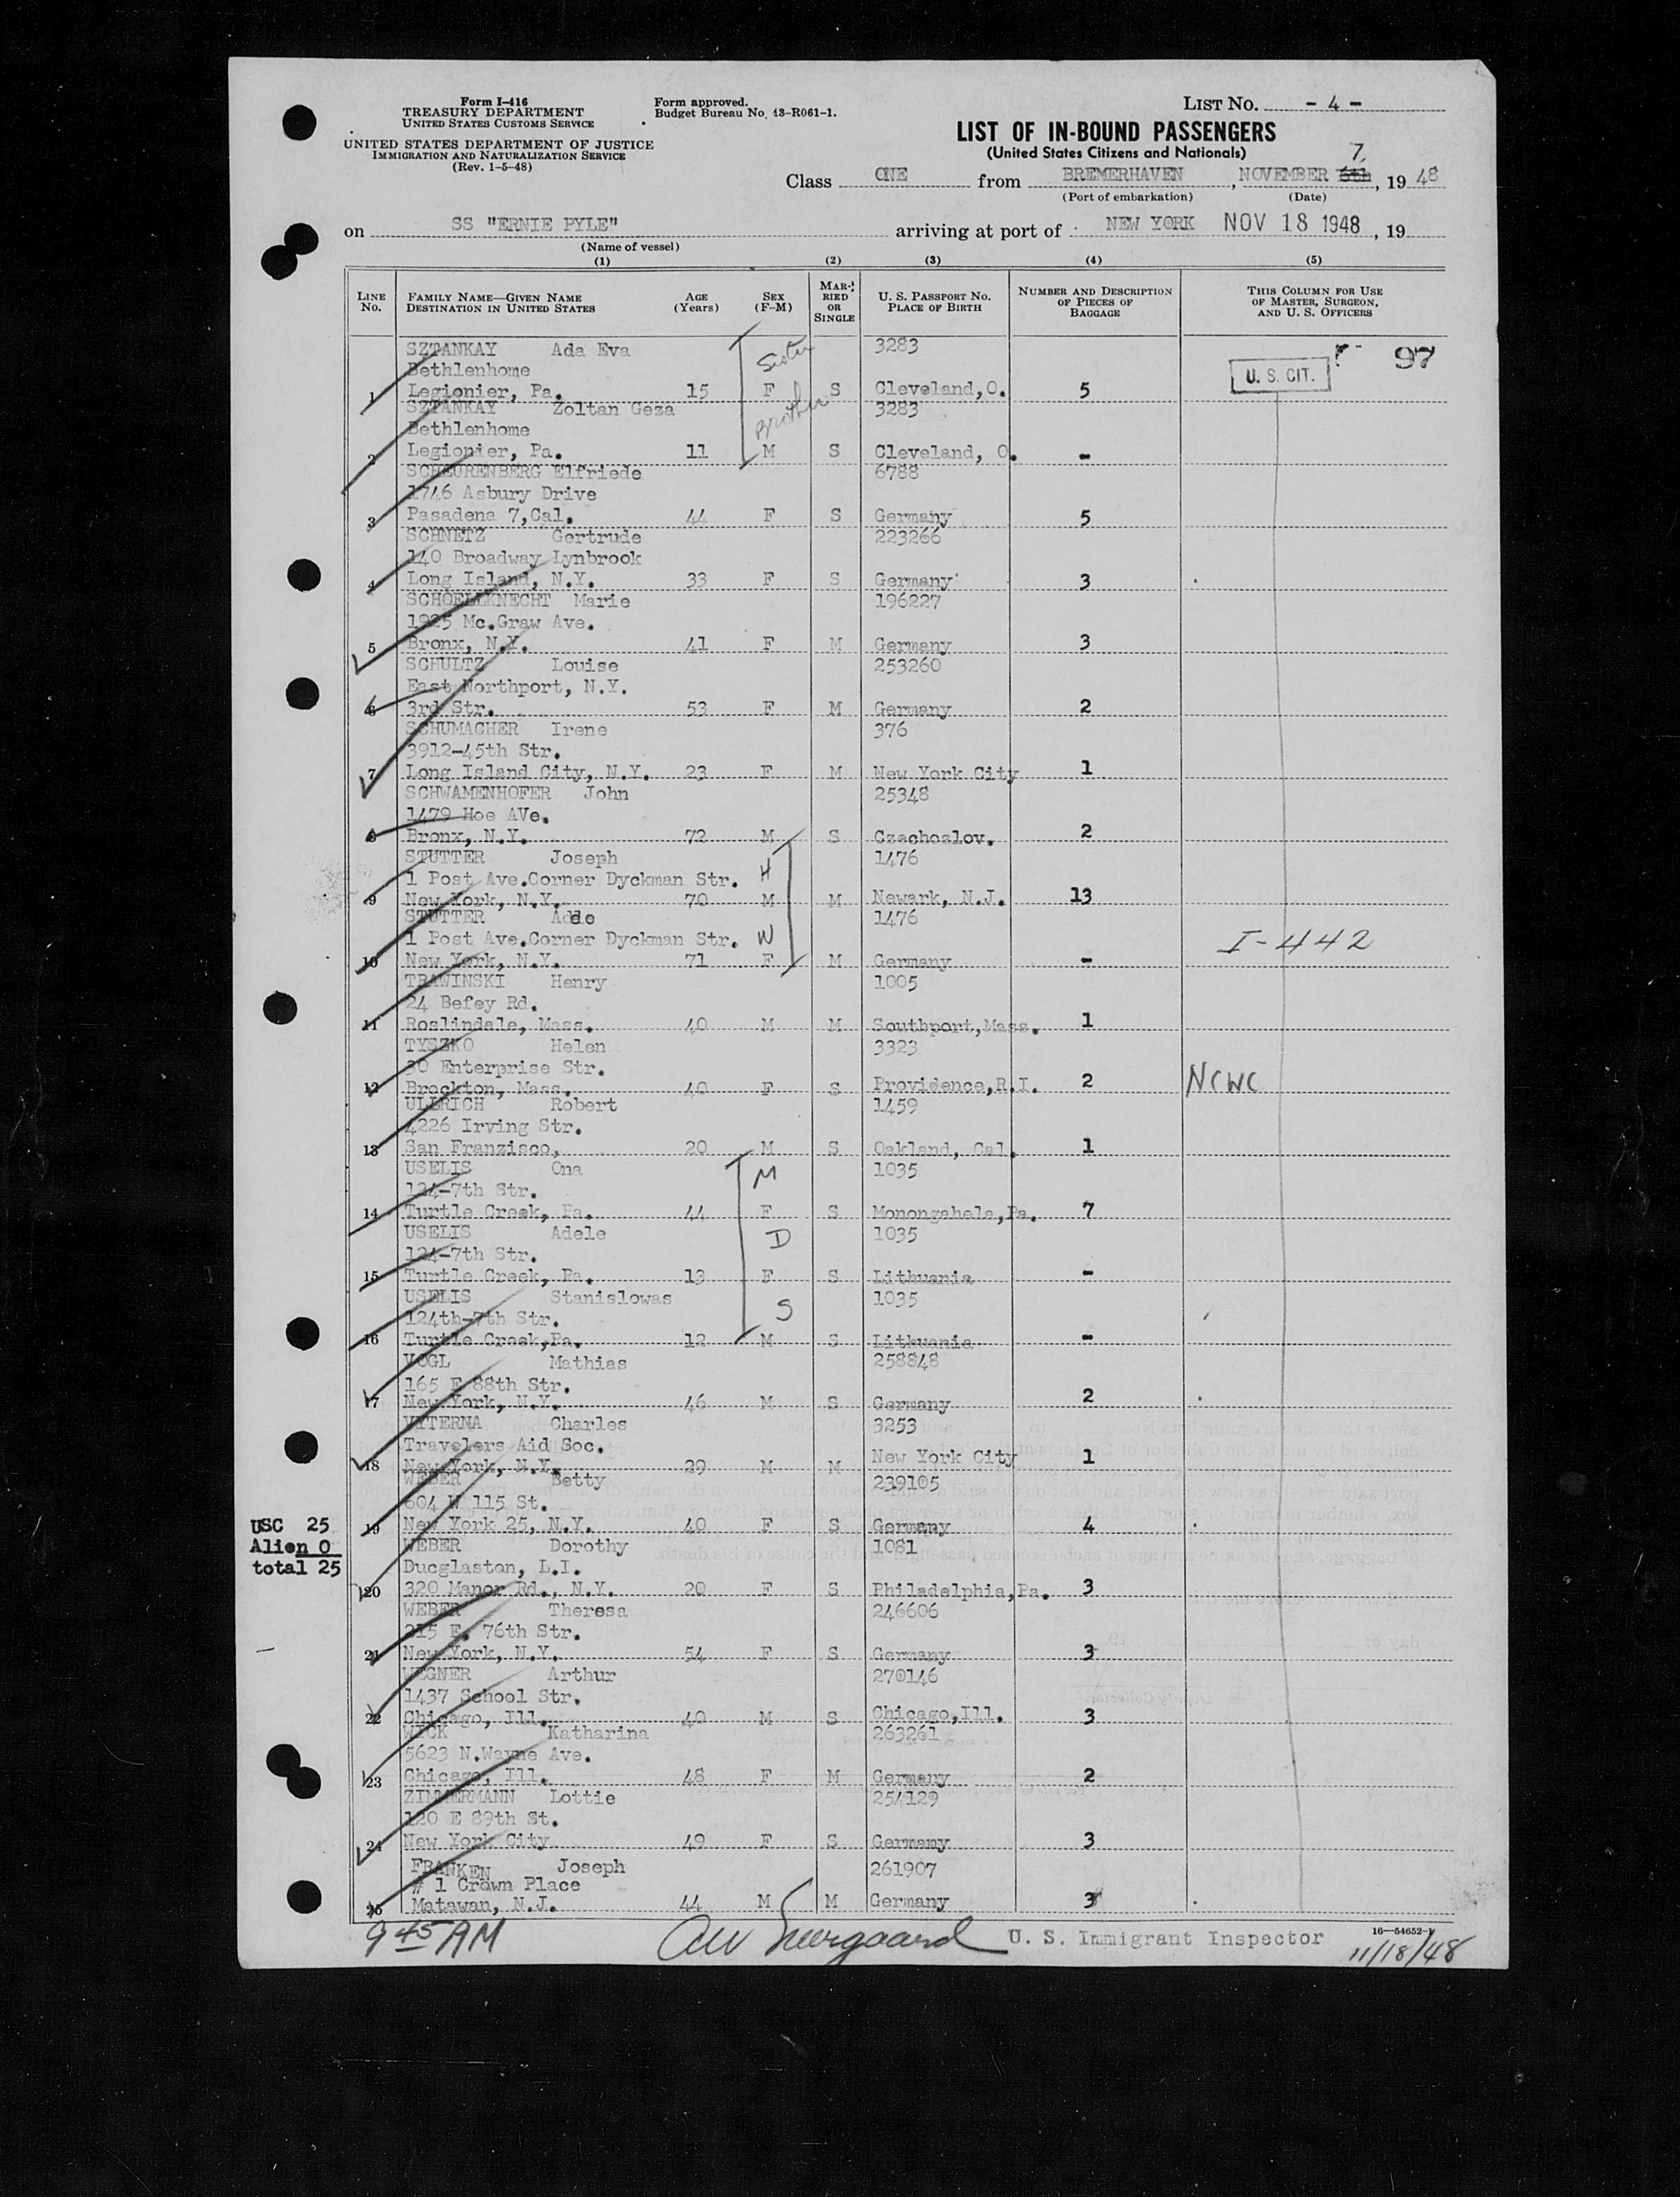 Form I-416
TREASURY DEPARTMENT
UNITED STATES CUSTOMS SERVICE
UNITED STATES DEPARTMENT OF JUSTICE
IMMIGRATION AND NATURALIZATION SERVICE
(Rev. 1-5-48)
Form approved.
Budget Bureau No. 43-R061-1.
LIST NO. - 4 -
LIST OF IN-BOUND PASSENGERS
(United States Citizens and Nationals)
7
Class ONE from BREMERHAVEN, NOVEMBER 6th, 19 48
(Port of embarkation) (Date)
on SS "ERNIE PYLE" arriving at port of NEW YORK NOV 18 1948, 19
(Name of vessel)
(1) (2) (3) (4) (5)
LINE NO. FAMILY NAME—GIVEN NAME DESTINATION IN UNITED STATES AGE (Years) SEX (F-M) MARRIED OR SINGLE U. S. PASSPORT NO. PLACE OF BIRTH NUMBER AND DESCRIPTION OF PIECES OF BAGGAGE THIS COLUMN FOR USE OF MASTER, SURGEON, AND U. S. OFFICERS
SZTANKAY Ada Eva Sister 3283 97
Bethlenhome U. S. CIT.
1 Legionier, Pa. 15 F S Cleveland,O. 5
SZTANKAY Zoltan Geza Brother 3283
Bethlenhome
2 Legionier, Pa. 11 M S Cleveland, O. -
SCHEURENBERG Elfriede 6788
1746 Asbury Drive
3 Pasadena 7,Cal. 44 F S Germany 5
SCHNETZ Gertrude 223266
140 Broadway Lynbrook
4 Long Island, N.Y. 33 F S Germany 3
SCHOELLKNECHT Marie 196227
1925 Mc.Graw Ave.
5 Bronx, N.Y. 41 F M Germany 3
SCHULTZ Louise 253260
East Northport, N.Y.
6 3rd Str. 53 F M Germany 2
SCHUMACHER Irene 376
3912-45th Str.
7 Long Island City, N.Y. 23 F M New York City 1
SCHWAMENHOFER John 25348
1479 Hoe AVe.
8 Bronx, N.Y. 72 M S Czechoslov. 2
STUTTER Joseph 1476
1 Post Ave.Corner Dyckman Str. H
9 New York, N.Y. 70 M M Newark, N.J. 13
STUTTER 1476
1 Post Ave.Corner Dyckman Str. W I-442
10 New York, N.Y. 71 F M Germany -
TRAWINSKI Henry 1005
24 Befey Rd.
11 Roslindale, Mass. 40 M M Southport,Mass. 1
TYSZKO Helen 3323
30 Enterprise Str.
12 Brockton, Mass. 40 F S Providence,R.I. 2 NCWC
ULLRICH Robert 1459
4226 Irving Str.
13 San Franzisco, 20 M S Oakland, Cal. 1
USELIS Ona M 1035
124-7th Str.
14 Turtle Creek, Pa. 44 F S Monongahela,Pa. 7
USELIS Adele D 1035
124-7th Str.
15 Turtle Creek, Pa. 13 F S Lithuania -
USELIS Stanislowas S 1035
124th-7th Str.
16 Turtle Creek,Pa. 12 M S Lithuania -
VOGL Mathias 258848
165 E 88th Str.
17 New York, N.Y. 46 M S Germany 2
VYTERNA Charles 3253
Travelers Aid Soc.
18 New York, N.Y. 29 M M New York City 1
WEBER Betty 239105
604 W 115 St.
19 New York 25, N.Y. 40 F S Germany 4
USC 25
Alien 0
total 25
WEBER Dorothy 1081
Ducglaston, L.I.
20 320 Manor Rd., N.Y. 20 F S Philadelphia,Pa. 3
WEBER Theresa 246606
215 E. 76th Str.
21 New York, N.Y. 54 F S Germany 3
WEGNER Arthur 270146
1437 School Str.
22 Chicago, Ill. 40 M S Chicago,Ill. 3
WICK Katharina 263261
5623 N.Wayne Ave.
23 Chicago, Ill. 48 F M Germany 2
ZIMMERMANN Lottie 254129
120 E 89th St.
24 New York City 49 F S Germany 3
FRANKEN Joseph 261907
# 1 Crown Place
25 Matawan, N.J. 44 M M Germany 3
9 45 AM U. S. Immigrant Inspector 16-54652-1
11/18/48